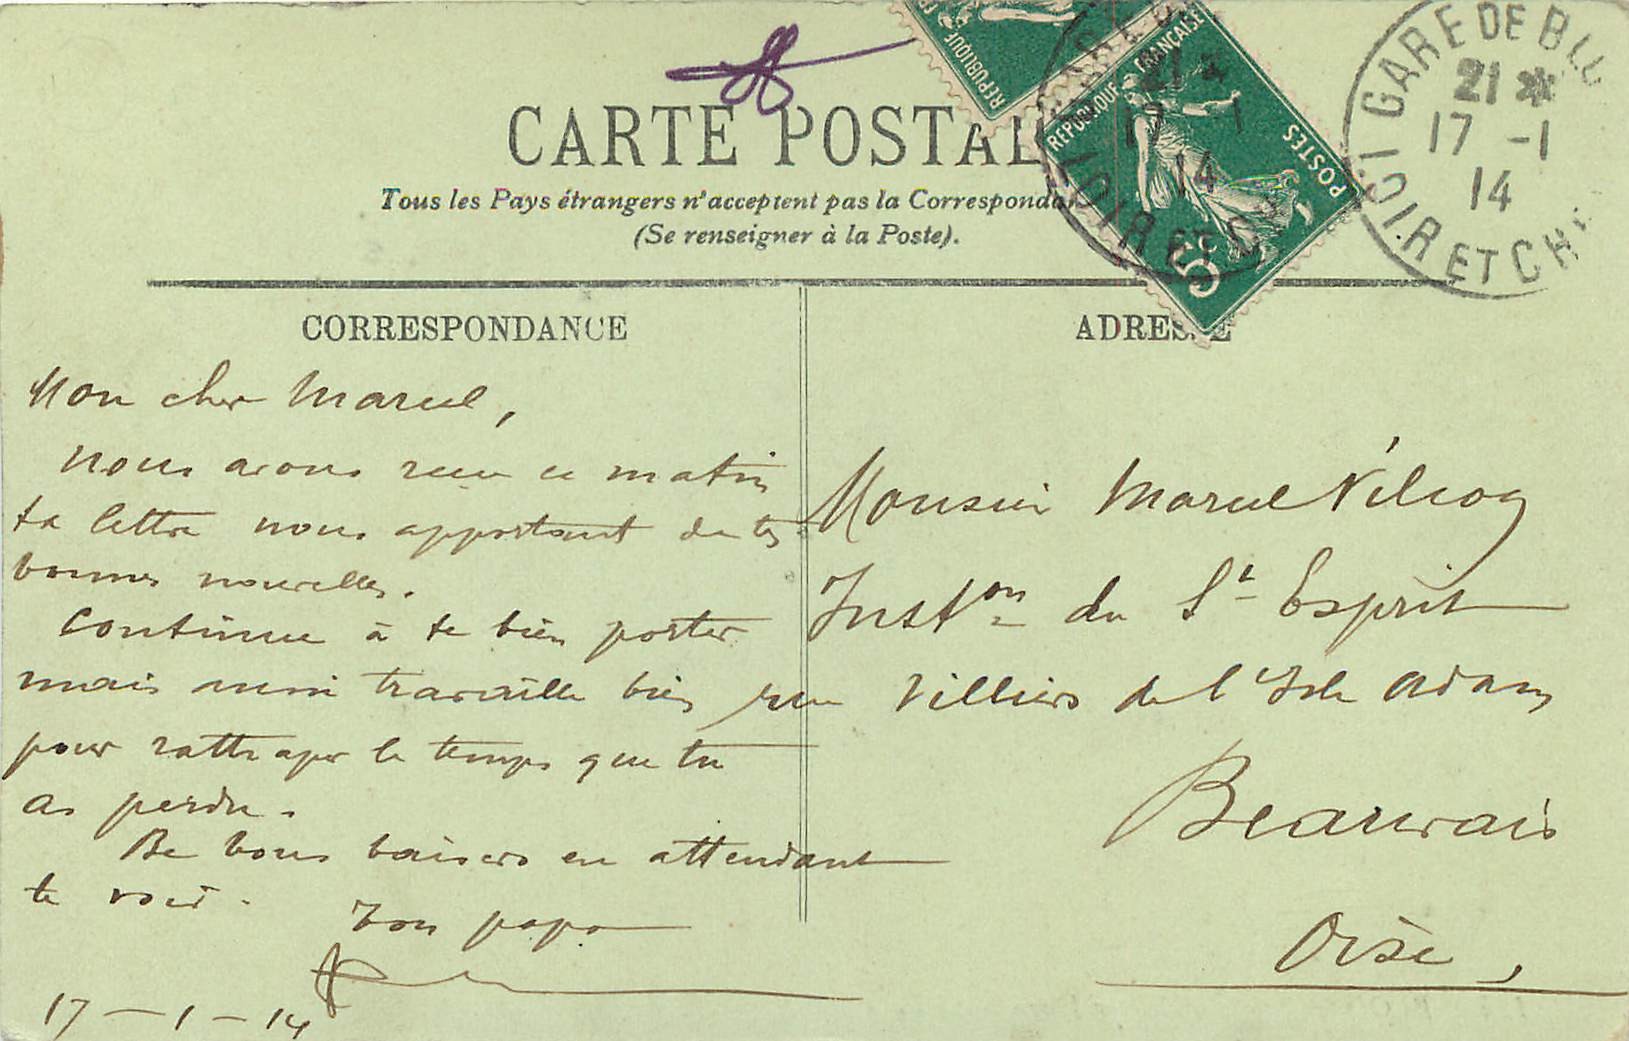 CARTE POSTAL
Tous les Pays étrangers n'acceptent pas la Correspondan
(Se renseigner à la Poste).
REPUBLIQUE
REPUBLIQUE FRANÇAISE
POSTES
5c
21
17 -1
14
LOIR ET CH
GARE DE BL
21 *
17 -1
14
LOIR ET CHE
CORRESPONDANCE
Mon cher Marcel,
nous avons recu ce matin
ta lettre nous apportant de tes
bonnes nouvelles.
Continue à te bien porter
mais aussi travaille bien
pour rattraper le temps que tu
as perdu.
De bons baisers en attendant
te voir.
Ton papa
17-1-14
ADRESSE
Monsieur Marcel Vilcoq
Inston du St Esprit
rue Villiers de l'Isle Adam
Beauvais
Oise,